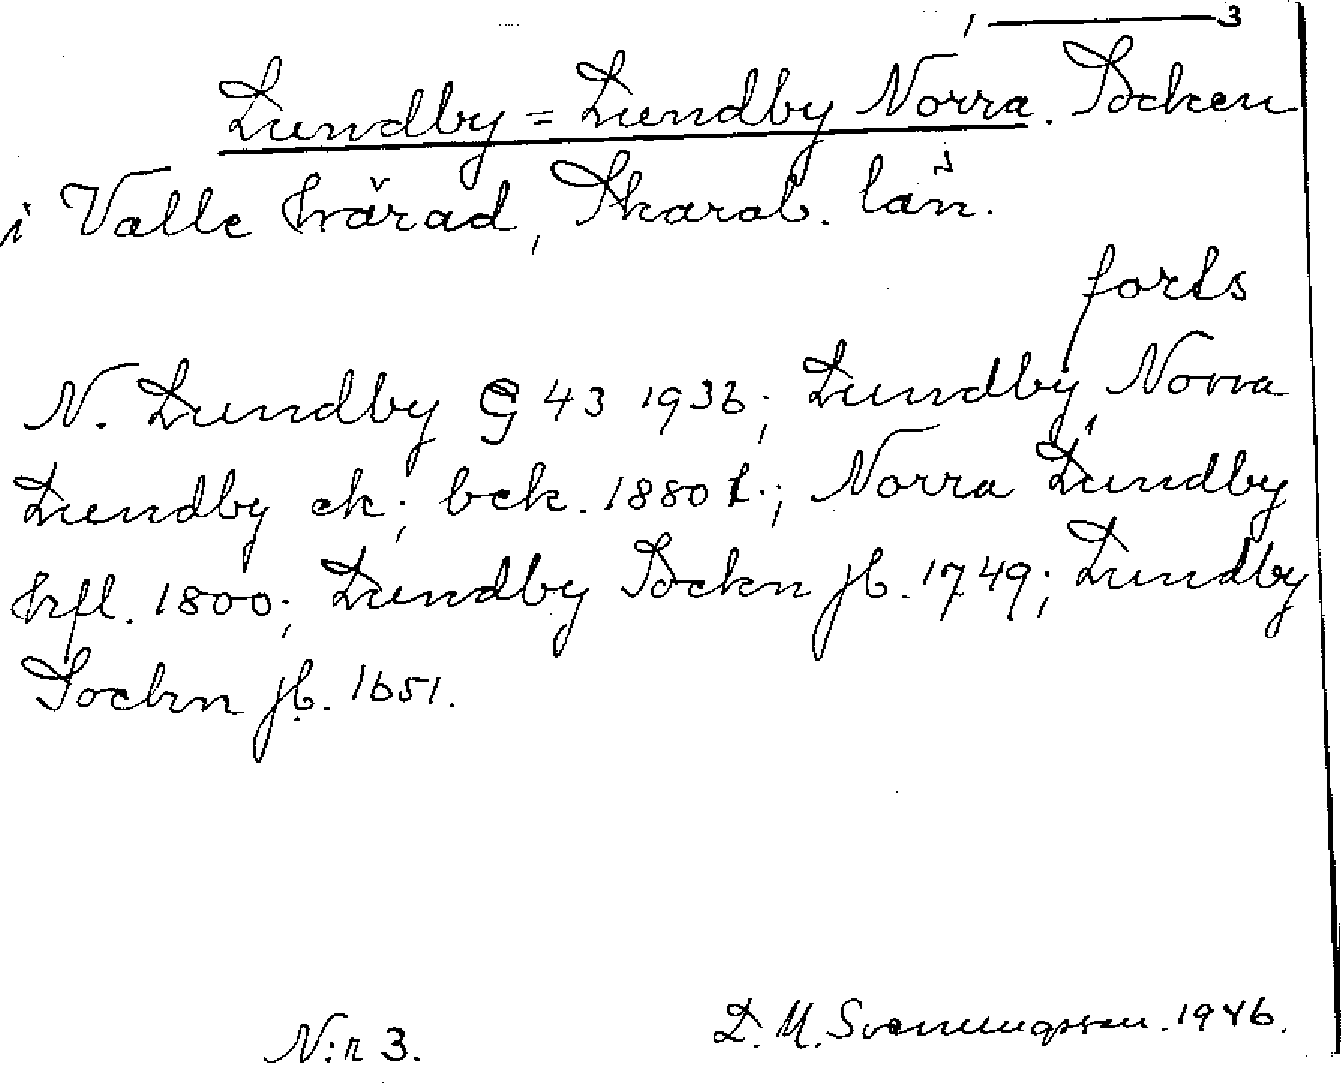 1 — 3
Lundby = Lundby Norra. Socken
i Valle härad, Skarab. län.
forts
N. Lundby G 43 1936; Lundby, Norra
Lundby ek; bek. 1880 t.; Norra Lundby
hfl. 1800; Lundby Sockn jb. 1749; Lundby
Sockn jb. 1651.
N:r 3.
D. M. Svenungsson. 1946.